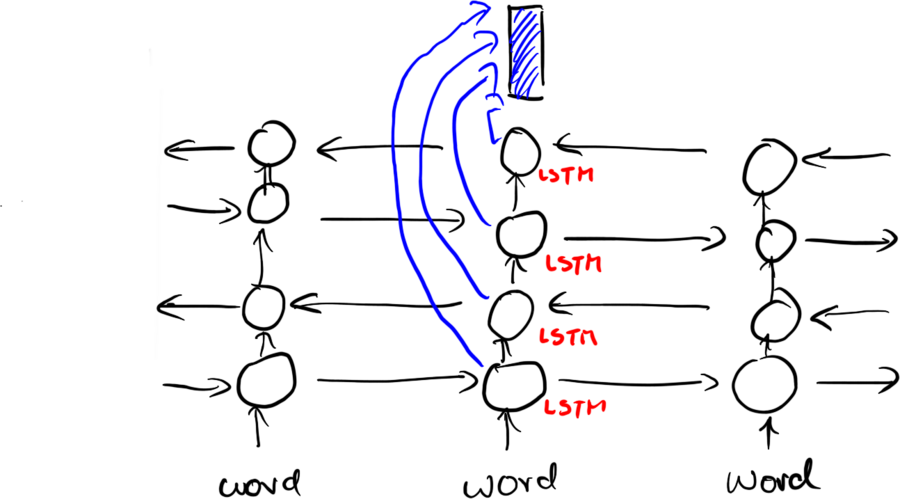 LSTM
LSTM
LSTM
LSTM
word word Word